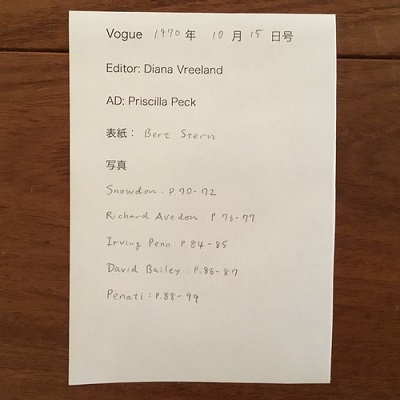 Vogue 1970年 10月 15日号
Editor: Diana Vreeland
AD: Priscilla Peck
表紙： Bert Stern
写真
Snowdon: P.70-72
Richard Avedon: P.76-77
Irving Penn: P.84-85
David Bailey: P.86-87
Penati: P.88-99